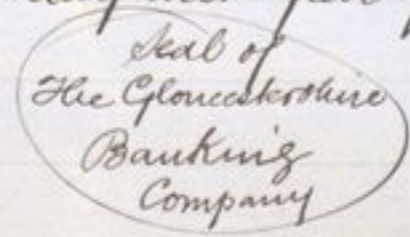 Seal of
The Gloucestershire
Banking
Company